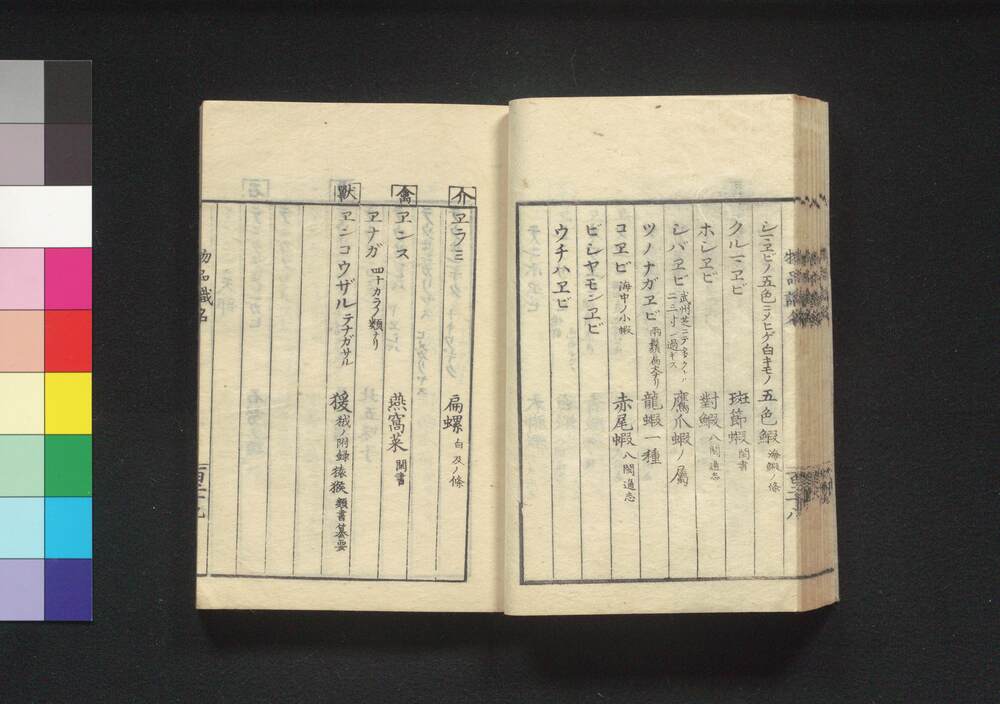 シマヱビノ五色ニメヒゲ白キモノ 五色鰕 海鰕ノ條
クルマヱビ 斑節蝦 閩書
ホシヱビ 對鰕 八閩通志
シバヱビ 武州芝ニテ多クトル 二三寸ニ過ギス 鷹爪蝦ノ属
ツノナガヱビ 龍蝦一種
コヱビ 海中ノ小蝦 赤尾蝦 八閩通志
ビシヤモンヱビ
ウチハヱビ
介 ヱラミ 扁螺 白及ノ條
禽 ヱンス 燕窩菜 閩書
ヱナガ 四十カラノ類ナリ
獣 ヱンコウザル テナガサル 猨 附録 猿猴 類書纂要
物品識名
百二十九